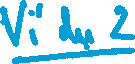 Ví dụ 2